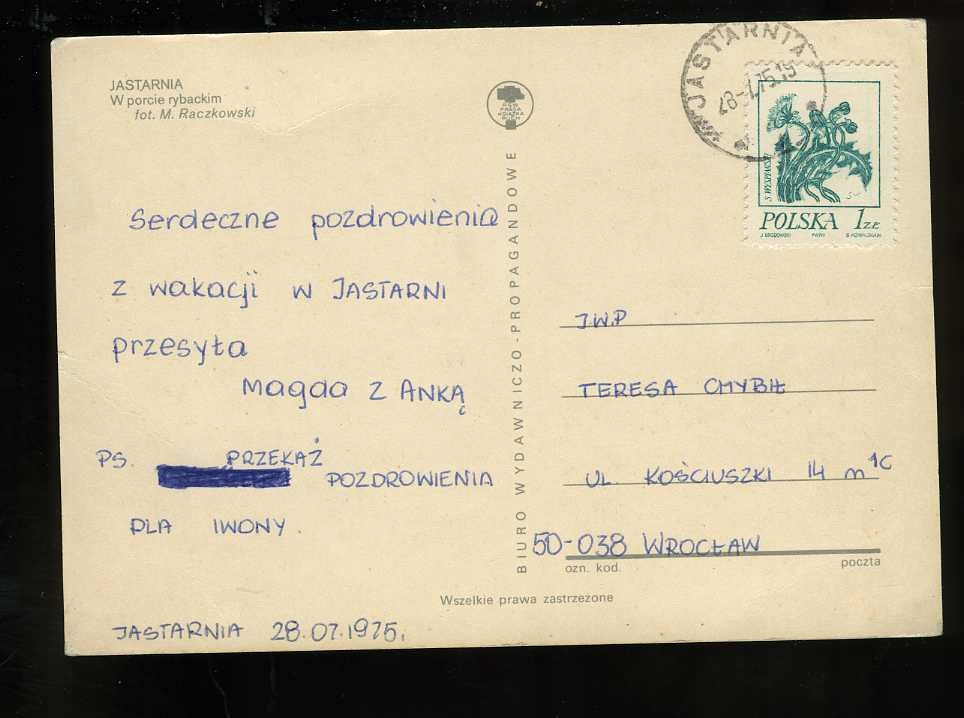 JASTARNIA
W porcie rybackim
fot. M. Raczkowski
Serdeczne pozdrowienia
z wakacji w JASTARNI
przesyła
Magda z ANKĄ
PS. PRZEKAŻ
POZDROWIENIA
DLA IWONY.
JASTARNIA 28.07.1975.
BIURO WYDAWNICZO-PROPAGANDOWE
JASTARNIA
S. WYSPIAŃSKI
POLSKA 1 ZŁ
PWPW
J.W.P
TERESA CHYBIŁ
UL. KOŚCIUSZKI 14 m 1C
50-038 WROCŁAW
ozn. kod.
poczta
Wszelkie prawa zastrzeżone